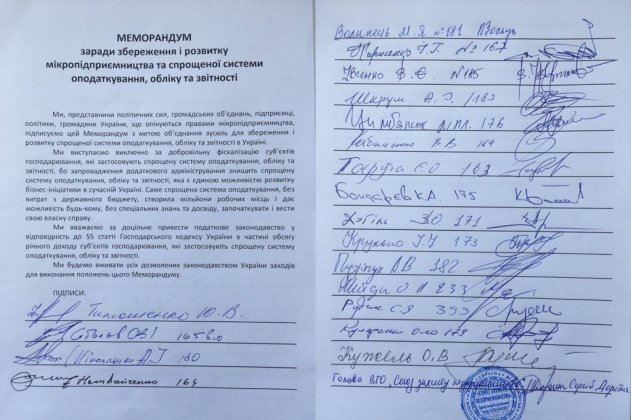 МЕМОРАНДУМ
заради збереження і розвитку
мікропідприємництва та спрощеної системи
оподаткування, обліку та звітності
Ми, представники політичних сил, громадських об'єднань, підприємці,
політики, громадяни України, що опікуються правами мікропідприємництва,
підписуємо цей Меморандум з метою об'єднання зусиль для збереження і
розвитку спрощеної системи оподаткування, обліку та звітності в Україні.
Ми виступаємо виключно за добровільну фіскалізацію суб'єктів
господарювання, які застосовують спрощену систему оподаткування, обліку та
звітності, бо запровадження додаткового адміністрування знищить спрощену
систему оподаткування, обліку та звітності, яка є єдиною можливістю розвитку
бізнес-ініціативи в сучасній Україні. Саме спрощена система оподаткування, без
витрат з державного бюджету, створила мільйони робочих місць і дає
можливість будь-кому, без спеціальних знань та досвіду, започаткувати і вести
свою власну справу.
Ми вважаємо за доцільне привести податкове законодавство у
відповідність до 55 статті Господарського кодексу України в частині обсягу
річного доходу суб'єктів господарювання, які застосовують спрощену систему
оподаткування, обліку та звітності.
Ми будемо вживати усіх дозволених законодавством України заходів
для виконання положень цього Меморандуму.
ПІДПИСИ:
Тимошенко Ю.В.
Соболєв 165
Ніколаєнко А.І 180
Наливайченко 164
Волинець М.Я №181
Кириленко І.Г. №167
Івченко В.Є. №185
Шкрум А.І. /183
Цимбалюк М.М. 176
В 189
163
Бондарєв К.А. 175
О 171
Крулько І.І 173
Пузійчук А.В 182
О П 233
С.Я 355
179
Кужель О.В
Голова ВГО „Союз захисту підприємництва" Сергій Доротич